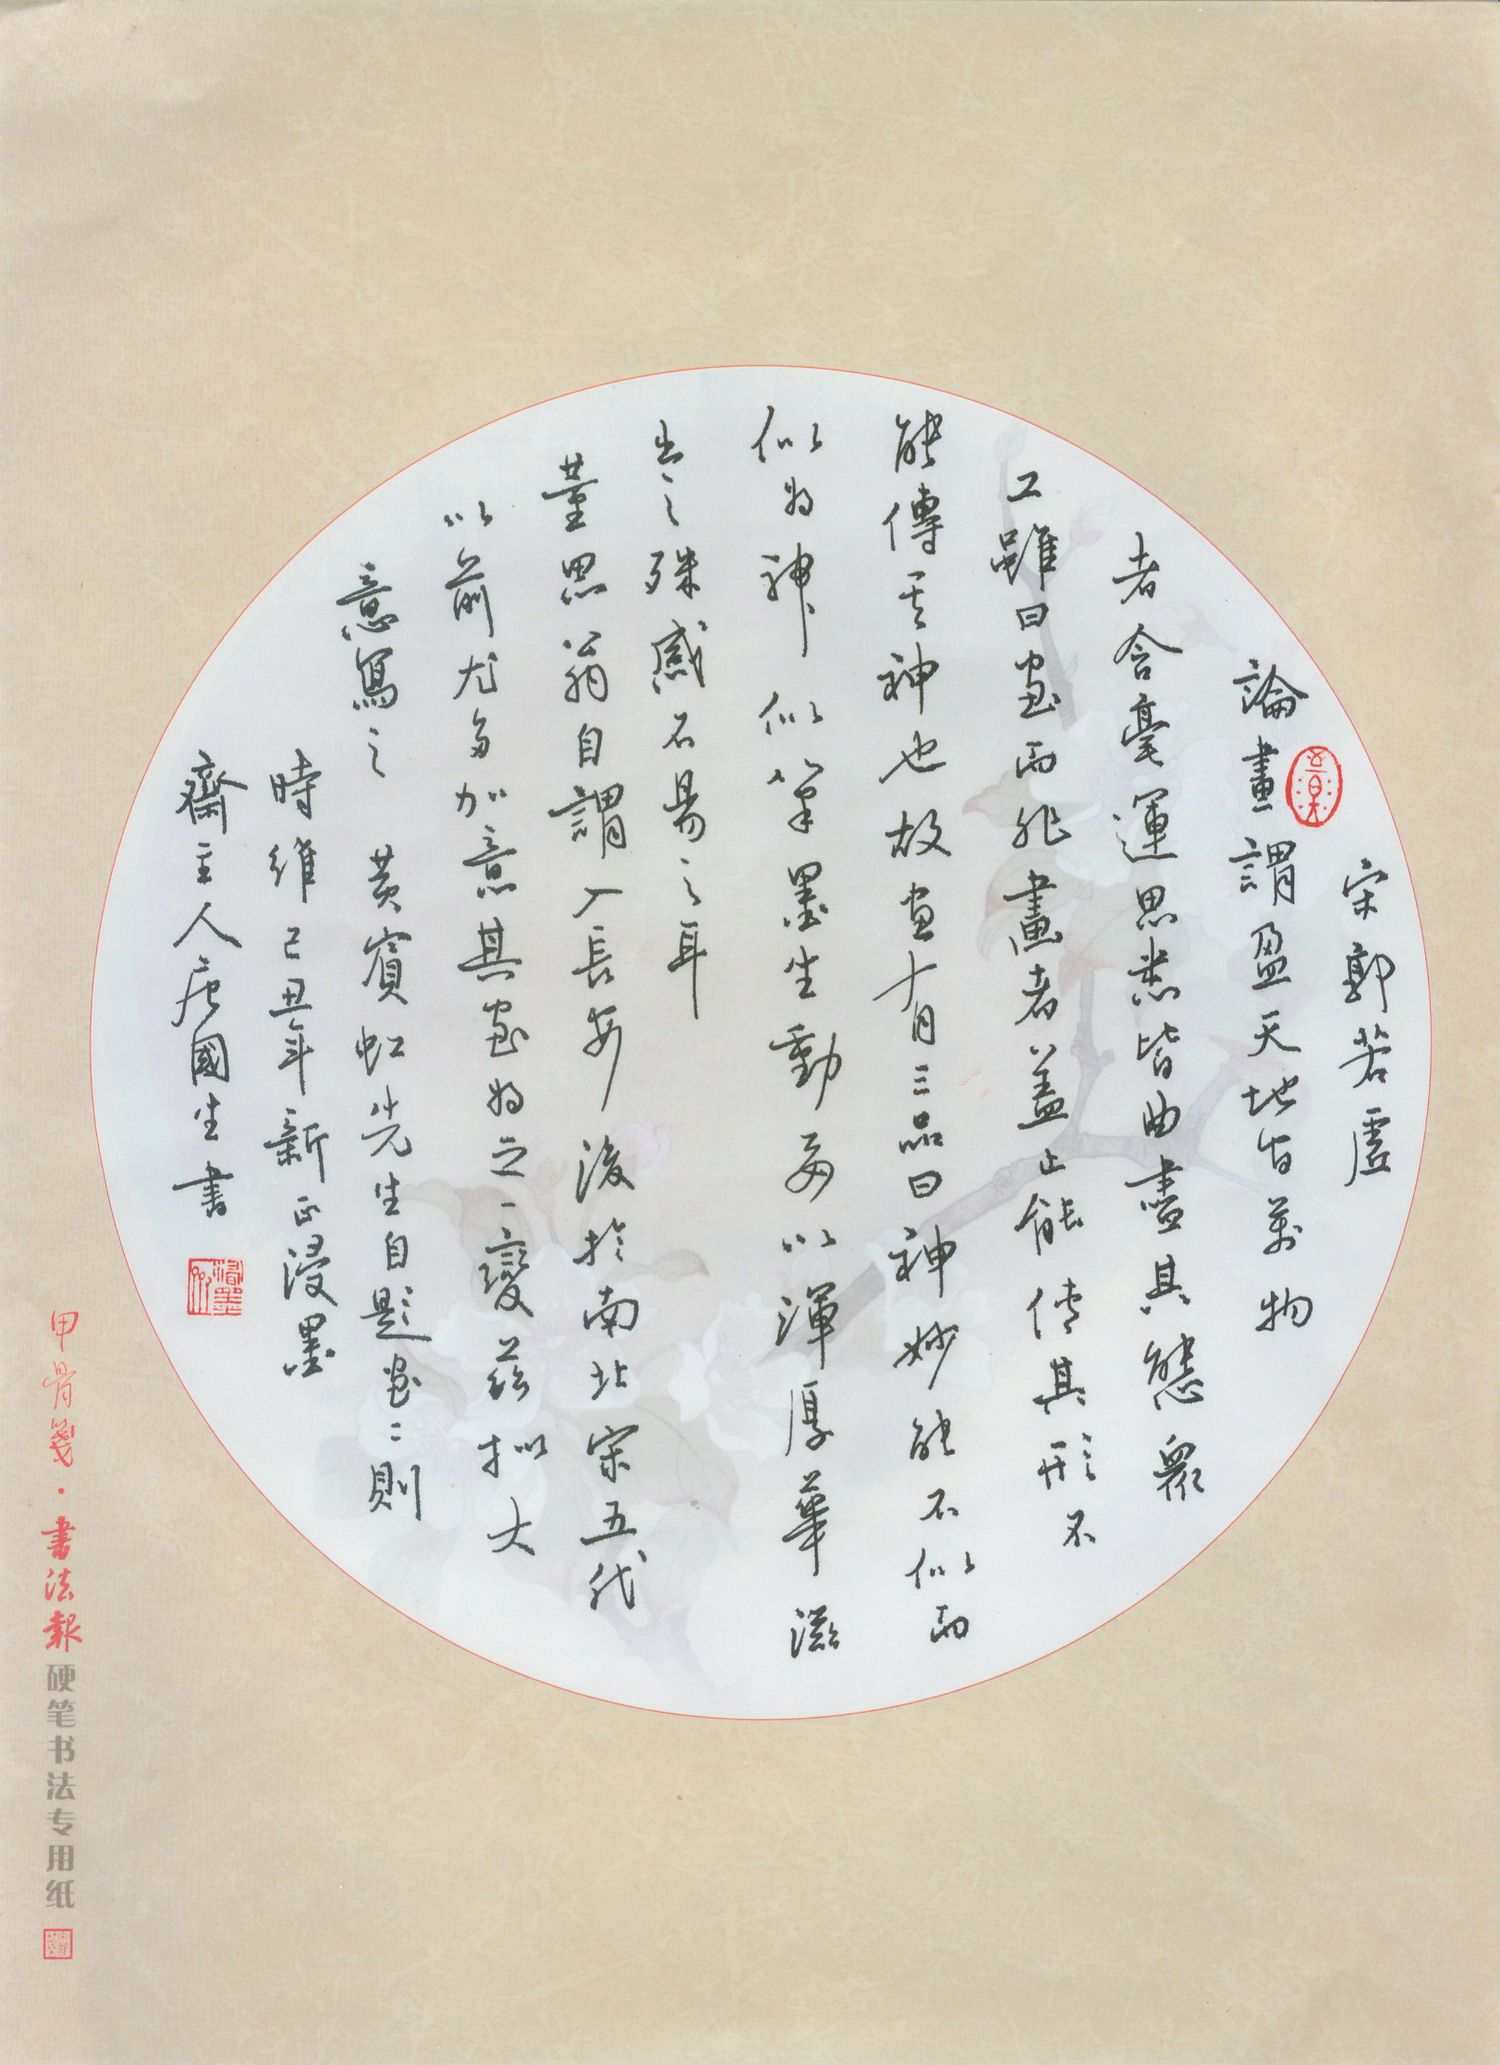 宋郭若虛
論畫謂盈天地皆萬物
者含毫運思悉皆曲盡其態衆
工雖曰画而非畫者蓋止能传其形不
能傳其神也故画有三品曰神妙能不似而
似為神似以筆墨生動無以渾厚華滋
出之殊感不易之耳
董思翁自謂入長安後於南北宋五代
以前尤多加意其画為之一變茲拟大
意寫之黃賓虹先生自題画二則
時維己丑年新正浸墨
齋主人居國生書
甲骨箋·書法報硬笔书法专用纸